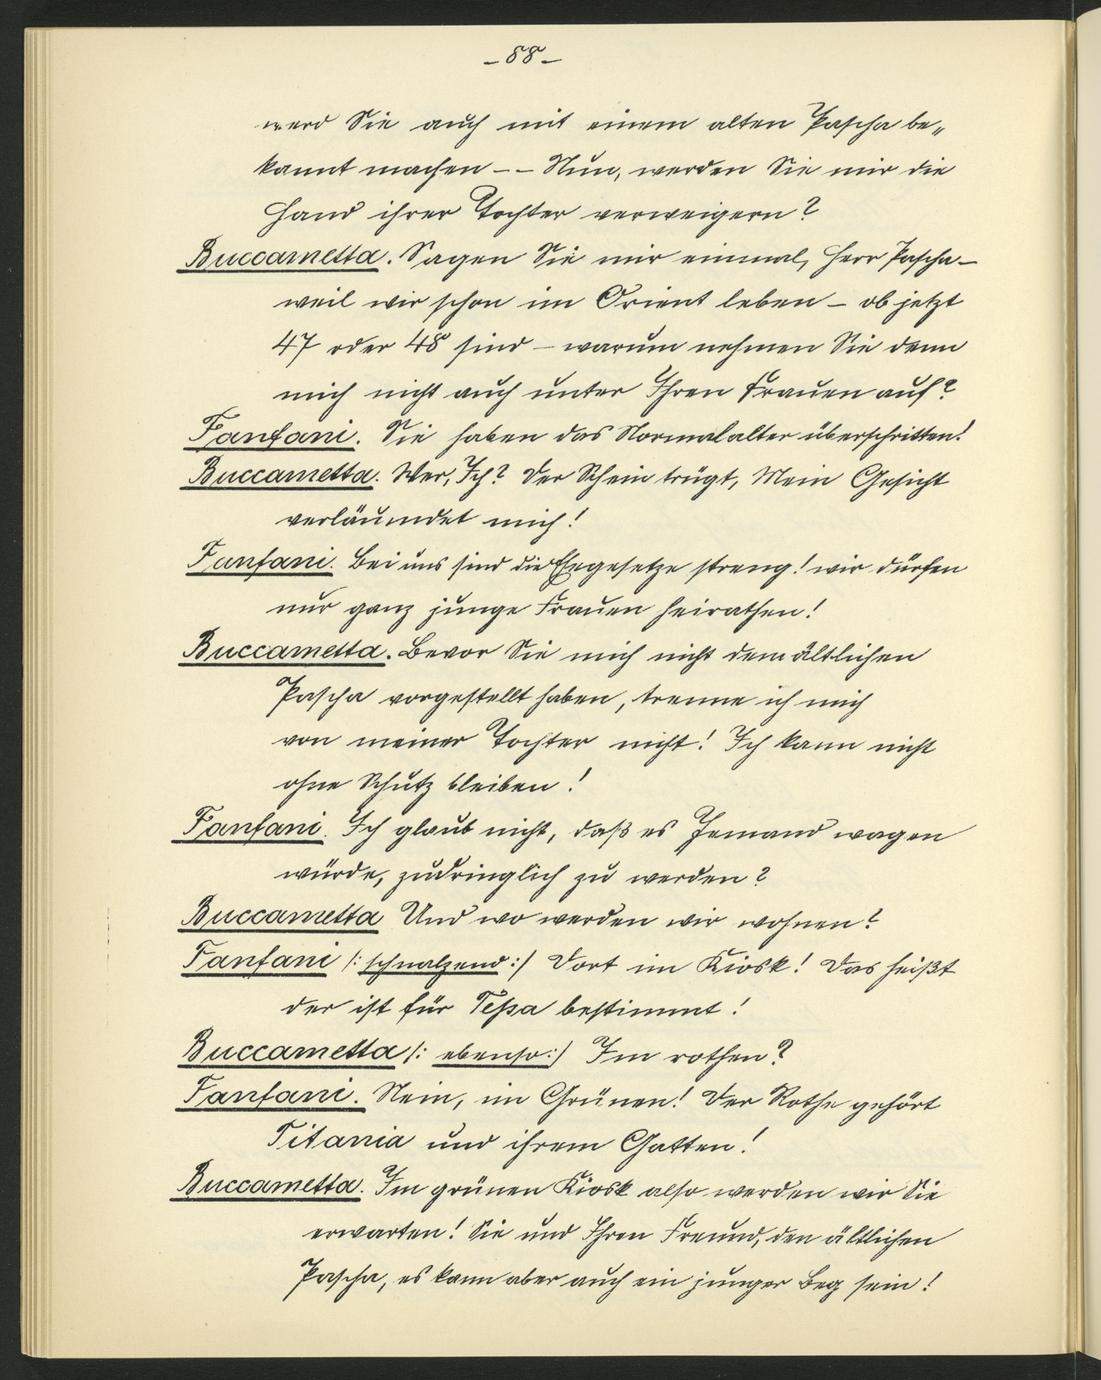 -88-
werd Sie auch mit einem alten Pascha be„
kannt machen -- Nun, werden Sie mir die
Hand ihrer Tochter verweigern?
Buccametta. Sagen Sie mir einmal, Herr Pascha-
weil wir schon im Orient leben - ob jetzt
47 oder 48 sind - warum nehmen Sie denn
mich nicht auch unter Ihren Frauen auf?
Fanfani. Sie haben das Normalalter überschritten!
Buccametta. Wer, Ich? Der Schein trügt, Mein Gesicht
verläumdet mich!
Fanfani. Bei uns sind die Ehegesetze streng! wir dürfen
nur ganz junge Frauen heirathen!
Buccametta. Bevor Sie mich nicht dem ältlichen
Pascha vorgestellt haben, trenne ich mich
von meiner Tochter nicht! Ich kann nicht
ohne Schutz bleiben!
Fanfani. Ich glaub nicht, daß es Jemand wagen
würde, zudringlich zu werden?
Buccametta Und wo werden wir wohnen?
Fanfani /: schnalzend :/ Dort im Kiosk! Das heißt
der ist für Teßa bestimmt!
Buccametta /: ebenso :/ Im rothen?
Fanfani. Nein, im Grünen! Der Rothe gehört
Titania und ihrem Gatten!
Buccametta. Im grünen Kiosk also werden wir Sie
erwarten! Sie und Ihren Freund, den ältlichen
Pascha, es kann aber auch ein junger Beg sein!